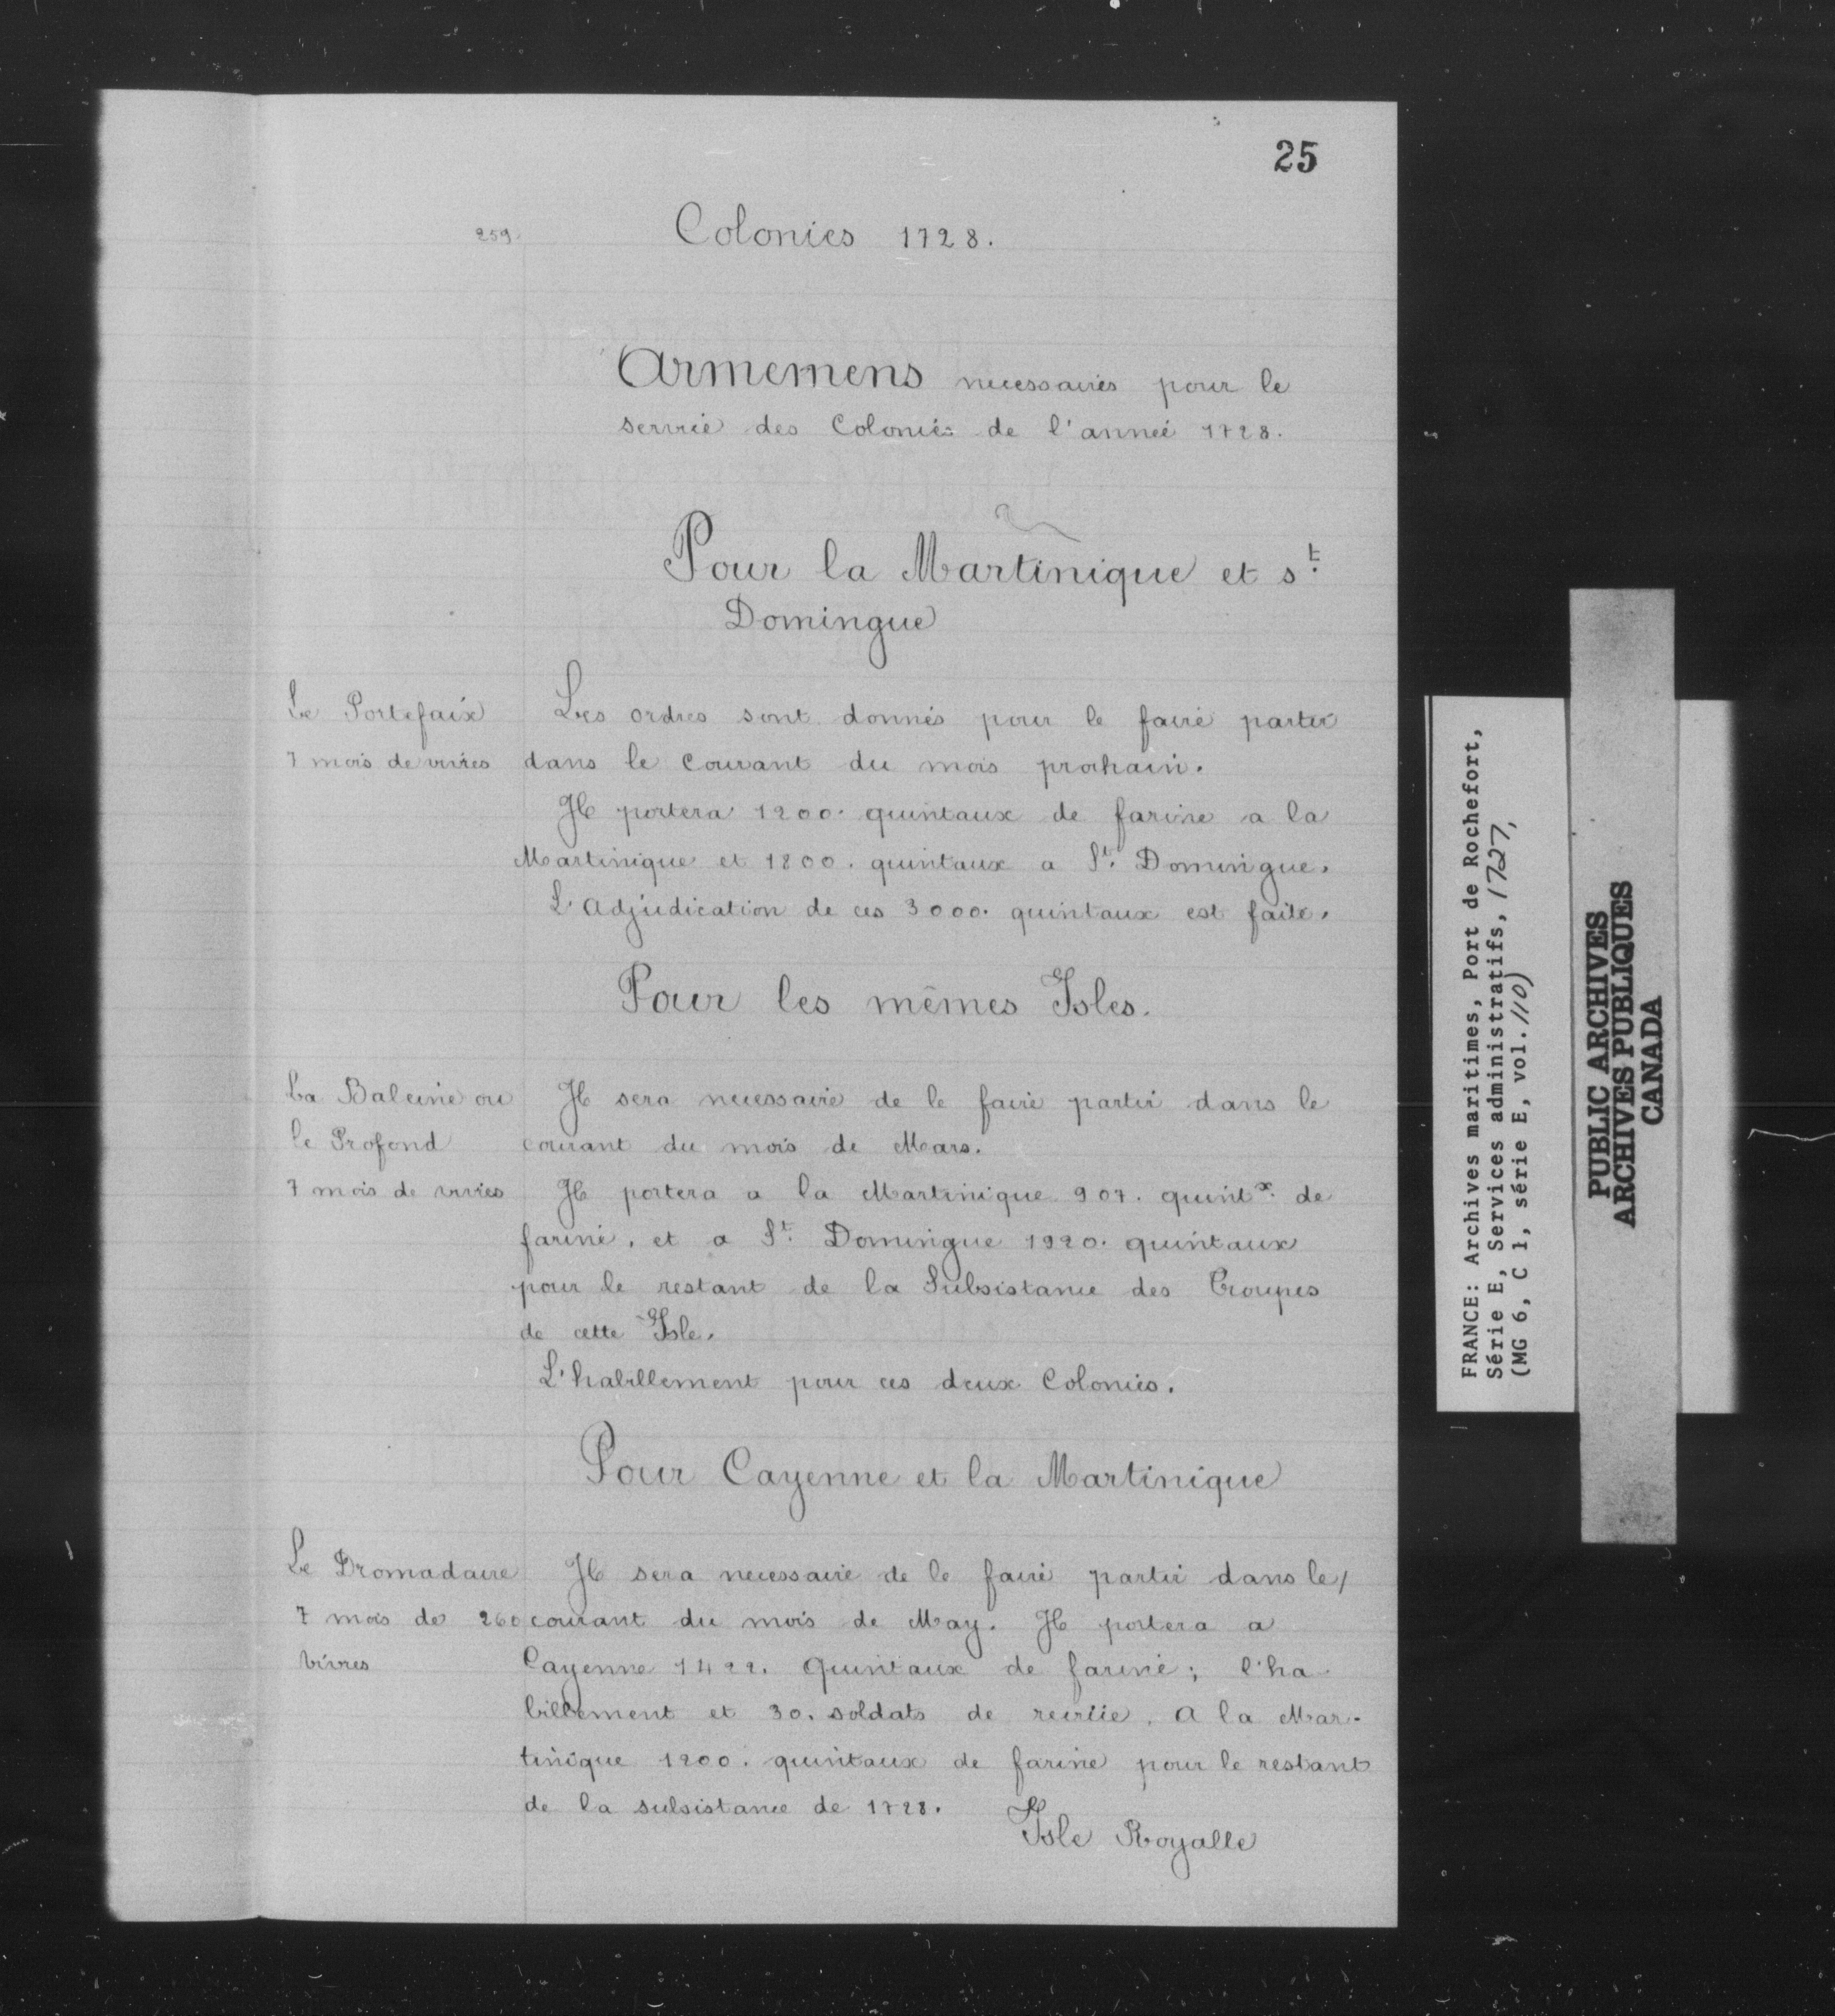 25
259.
Colonies 1728.
Armemens necessaires pour le
service des Colonies de l'année 1728.
Pour la Martinique et s.t
Domingue
Le Portefaix
7 mois de vivres
Les ordres sont donnés pour le faire partir
dans le Courant du mois prochain.
Il portera 1200. quintaux de farine a la
Martinique et 1800. quintaux a S.t Domingue.
L'Adjudication de ces 3000. quintaux est faite.
Pour les mêmes Isles.
La Baleine ou
le Profond
7 mois de vivres
Il sera necessaire de le faire partir dans le
courant du mois de Mars.
Il portera a la Martinique 907. quint.x de
farine, et a S.t Domingue 1920. quintaux
pour le restant de la Subsistance des Troupes
de cette Isle.
L'habillement pour ces deux Colonies.
Pour Cayenne et la Martinique
Le Dromadaire
7 mois de
vivres
260
Il sera necessaire de le faire partir dans le/
courant du mois de May. Il portera a
Cayenne 1422. Quintaux de farine; l'ha-
billement et 30. soldats de recrüe. A la Mar-
tinique 1200. quintaux de farine pour le restant
de la subsistance de 1728.
Isle Royalle
FRANCE: Archives maritimes, Port de Rochefort,
Série E, Services administratifs, 1727,
(MG 6, C 1, série E, vol. 110)
PUBLIC ARCHIVES
ARCHIVES PUBLIQUES
CANADA